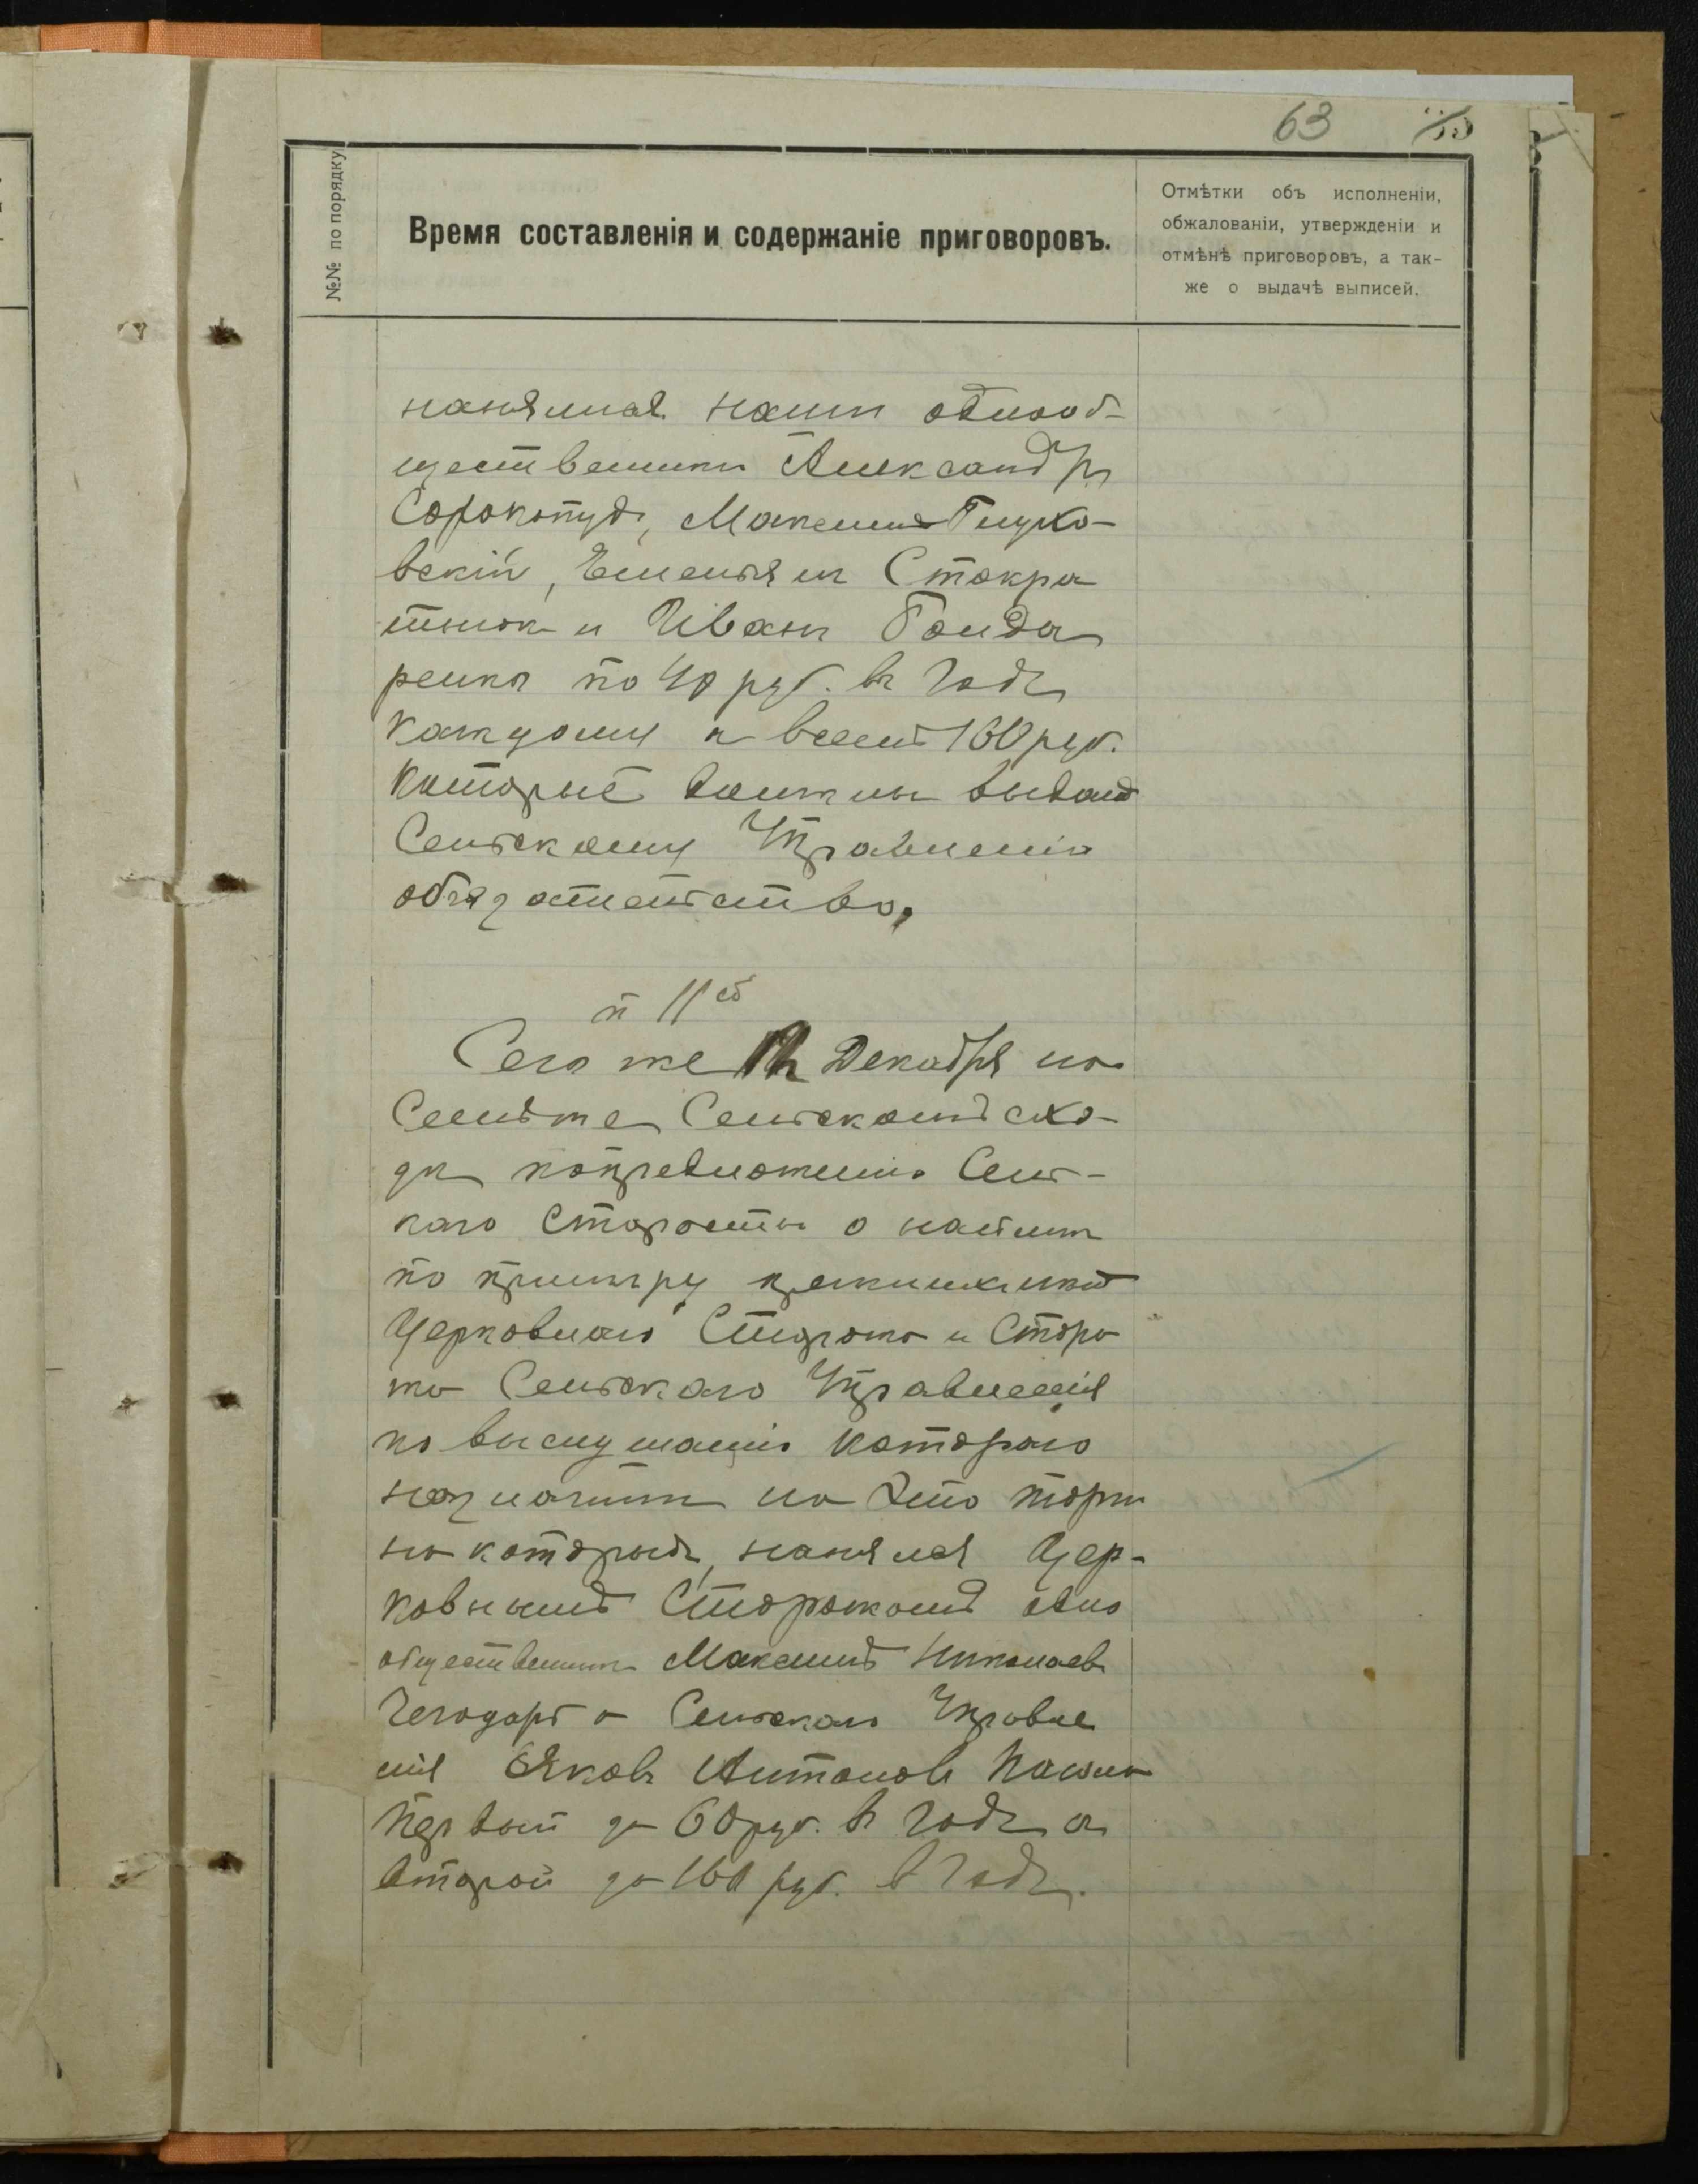 63
№№ по порядку
Время составленія и содержаніе приговоровъ.
Отмѣтки объ исполненіи,
обжалованіи, утвержденіи и
отмѣнѣ приговоровъ, а так-
же о выдачѣ выписей.
нанялися наши однооб-
щественники Александръ
Сорокопудъ, Максимъ Глухо-
вскій, Емельянъ Стокра
тнюк и Иванъ Бонда
ренко по 40 руб. въ годъ
каждому а всемъ 160 руб.
которые должны выдать
Сельскому Управленію
обязательство,
п 11й
Сего же 12 Декабря на
Семъ же Сельскомъ схо-
дѣ по предложенію Сель-
каго Старосты о найми
по примѣру
Церковнаго Сторожа и Сторо
жа Сельскаго Управленія
по выслушанію котораго
назначили на это торги
на которыхъ нанялся Цер-
ковнымъ Сторожомъ одно
общественникъ Максимъ Николаевъ
а Сельскаго Управле
нія Яковъ Антоновъ
первый за 60 руб. въ годъ а
второй за 160 руб. в годъ.